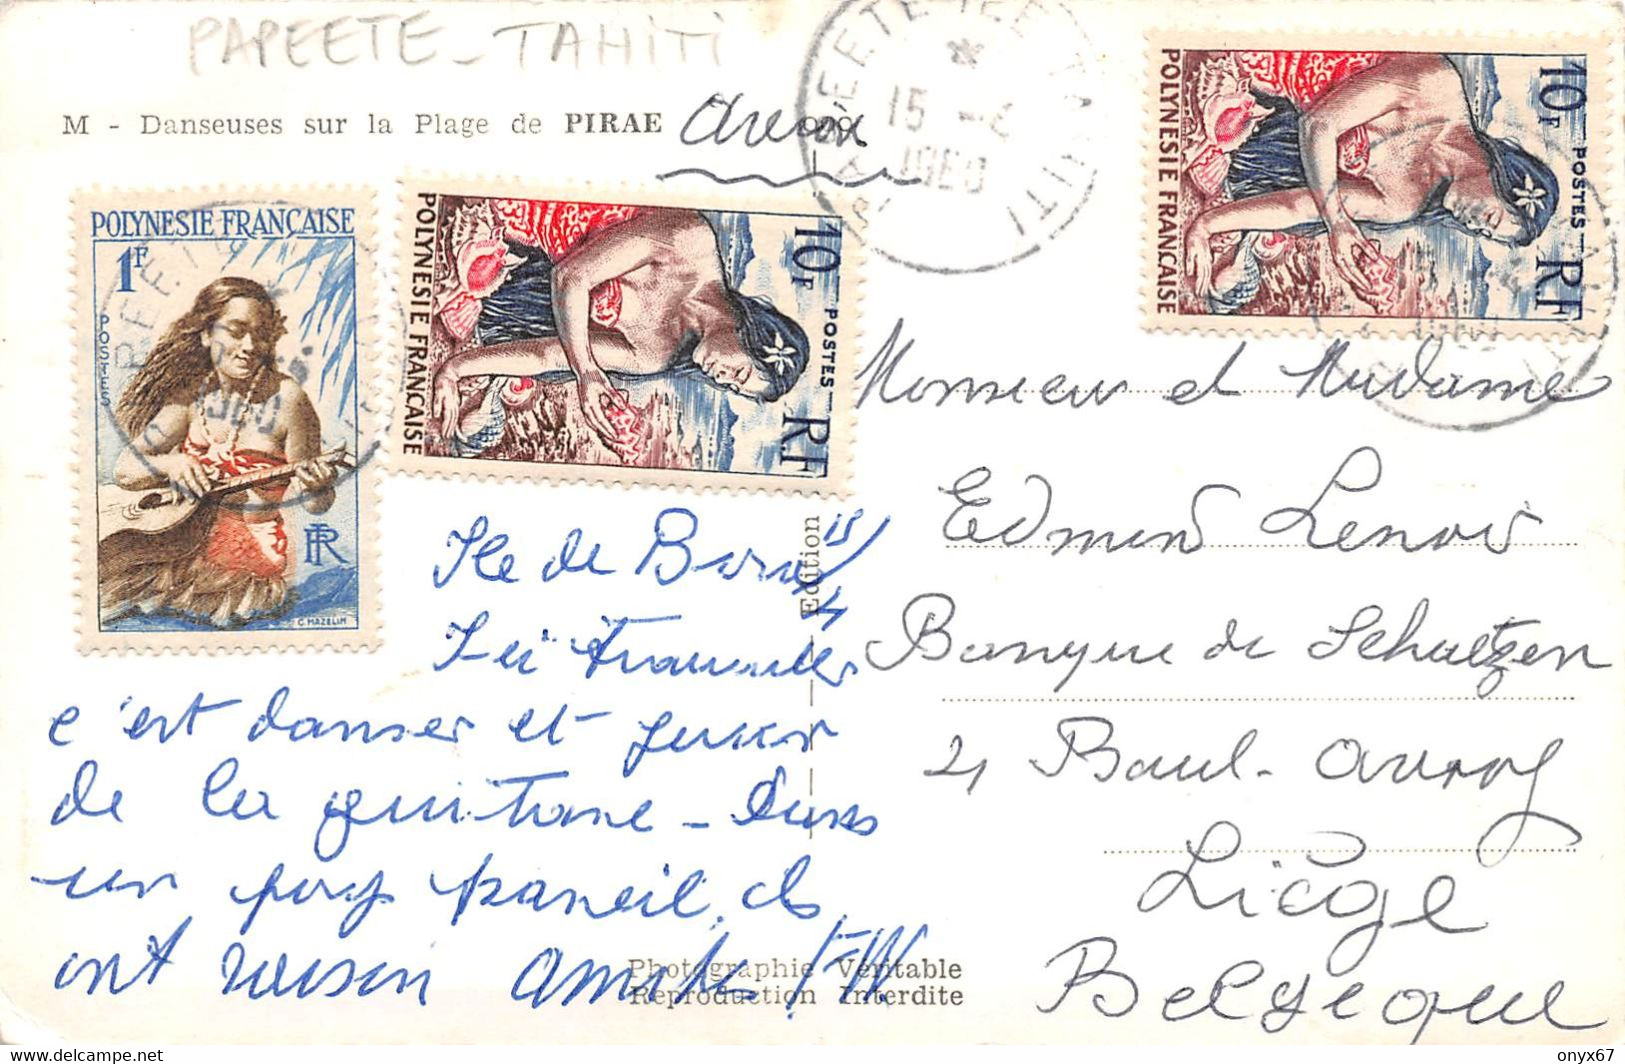 PAPEETE - TAHITI
M - Danseuses sur la Plage de PIRAE
avion
PAPEETE
15 - 4
1960
TAHITI
POLYNESIE FRANÇAISE
1F
POSTES
RF
C. MAZELIN
10F
POSTES
RF
POLYNESIE FRANÇAISE
10F
POSTES
RF
POLYNESIE FRANÇAISE
Edition
15/4
Ile de Bora
Ici travailler
c'est danser et jouer
de la guitare - Dans
un pays pareil, ils
ont raison amitiés
Photographie Véritable
Reproduction Interdite
Monsieur et Madame
Edmond Lenoir
Banque de Schaetzen
21 Boul. Avroy
Liège
Belgique
onyx67